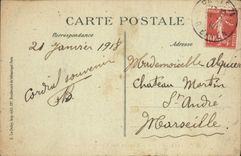 CARTE POSTALE
Correspondance
Adresse
21 Janvier 1918
Cordial souvenir
Mademoiselle Alquier
Chateau Martin
St André
Marseille